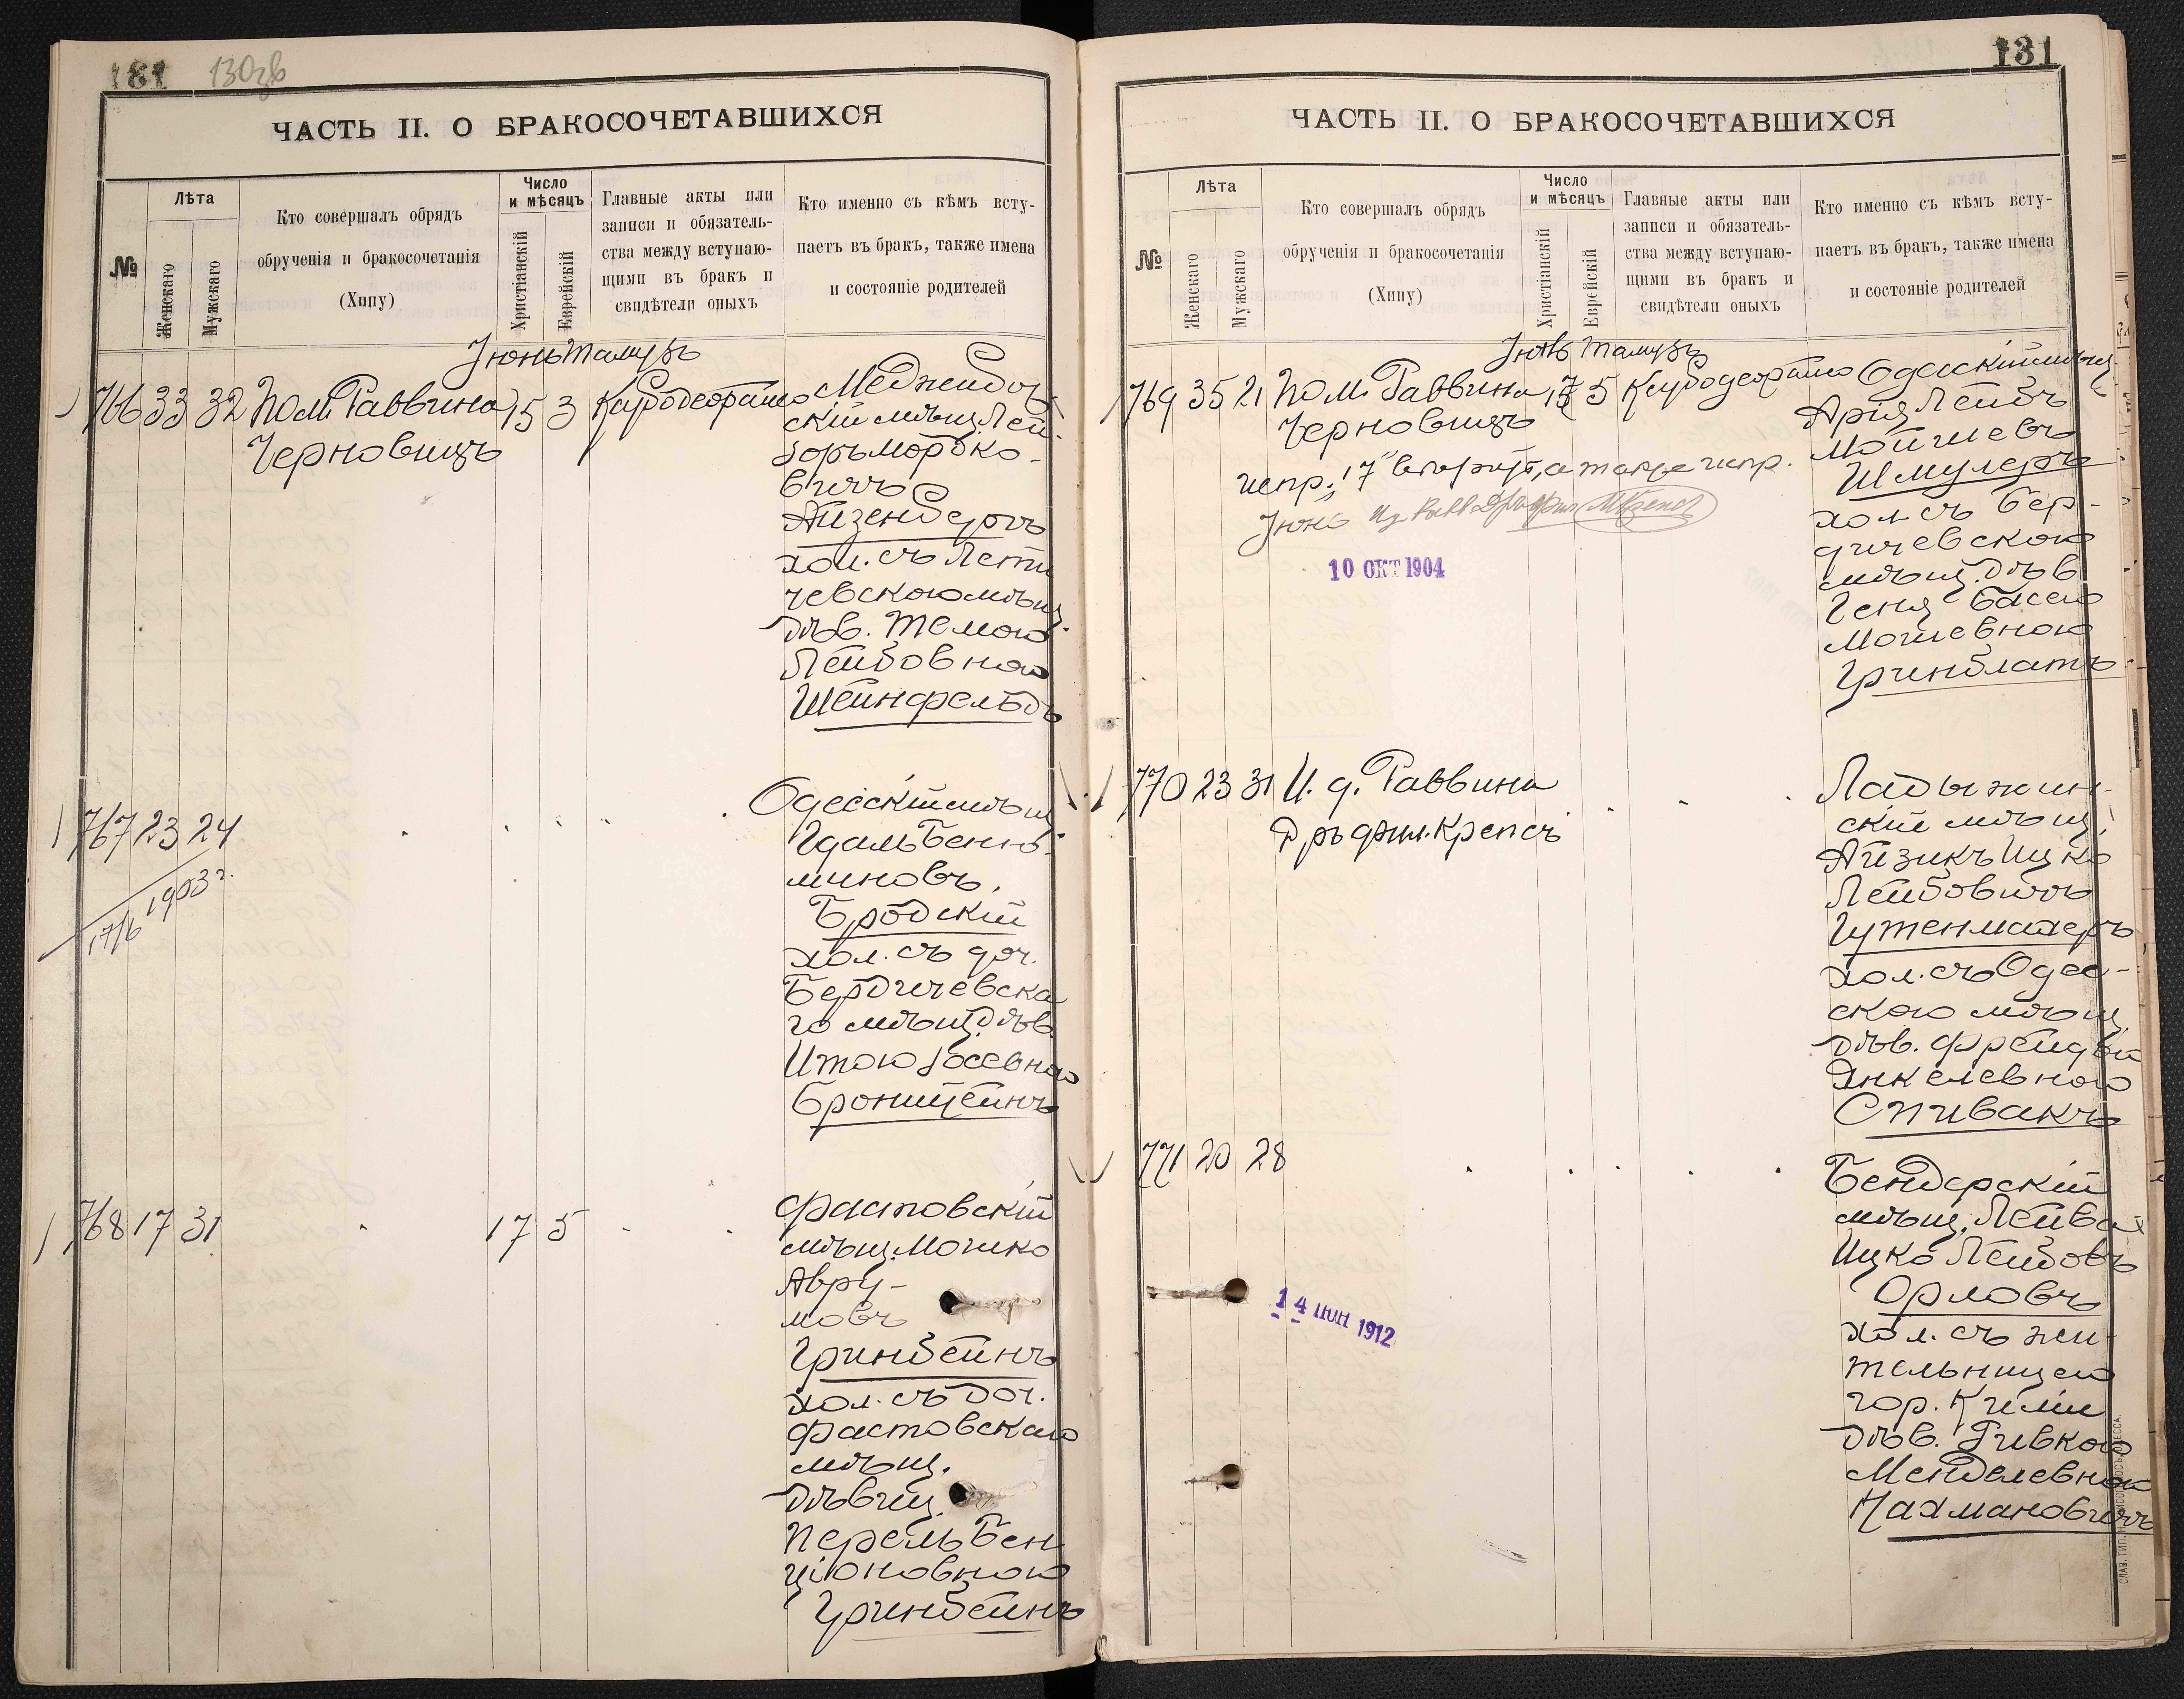 181 130зв
ЧАСТЬ II. О БРАКОСОЧЕТАВШИХСЯ
№
Лѣта
Женскаго
Мужскаго
Кто совершалъ обрядъ
обрученія и бракосочетанія
(Хипу)
Число
и мѣсяцъ
Христіанскій
Еврейскій
Главные акты или
записи и обязатель-
ства между вступаю-
щими въ бракъ и
свидѣтели оныхъ
Кто именно съ кѣмъ всту-
паетъ въ бракъ, также имена
и состояніе родителей
Іюнь Тамузъ
766 33 32 Пом. Раввина 15 3
Черновицъ
Меджибож
скій мѣщ. Лей-
зоръ Мордко-
вичъ
Айзенбергъ
хол. съ Лети
чевскою мѣщ.
дѣв. Темою
Лейбовною
Шейнфельдъ
767 23 24
17/6 1903 г.
Одесскій мѣщ
Гдаль Беніа-
миновъ
Бродскій
хол. съ доч.
Бердичевска
го мѣщ. дѣв.
Итою Іосевною
Бронштейнъ
768 17 31 17 5
Фастовскій
мѣщ. Мошко
Авру-
мовъ
Гринбейнъ
хол. съ доч.
Фастовскаго
мѣщ.
дѣвиц.
Перель Бен
ціоновною
Гринбейнъ
131
ЧАСТЬ II. О БРАКОСОЧЕТАВШИХСЯ
№
Лѣта
Женскаго
Мужскаго
Кто совершалъ обрядъ
обрученія и бракосочетанія
(Хипу)
Число
и мѣсяцъ
Христіанскій
Еврейскій
Главные акты или
записи и обязатель-
ства между вступаю-
щими въ бракъ и
свидѣтели оныхъ
Кто именно съ кѣмъ всту-
паетъ въ бракъ, также имена
и состояніе родителей
Іюнь Тамузъ
769 35 21 Пом. Раввина 17 5
Черновицъ
испр. "17" а также испр.
Іюнь
10 ОКТ 1904
Одесскій мѣщ
Арія Лейбъ
Мойшевъ
Шмулеръ
хол. съ Бер-
дичевскою
мѣщ. дѣв
Геня Басею
Мошевною
Гринблатъ
770 23 31 И. д. Раввина
Д ръ фил. Крепсъ
Ладыжин-
скій мѣщ.
Айзикъ Ицко
Лейбовичъ
Гутенмахеръ
хол. съ Одес-
скою мѣщ.
дѣв. Фрейдой
Янкелевною
Спивакъ
771 20 28
14 ИЮН 1912
Бендерскій
мѣщ. Лейва
Ицко Лейбовъ
Орловъ
хол. съ жи-
тельницею
гор. Киліи
дѣв. Ривкою
Менделевною
Нахмановичъ